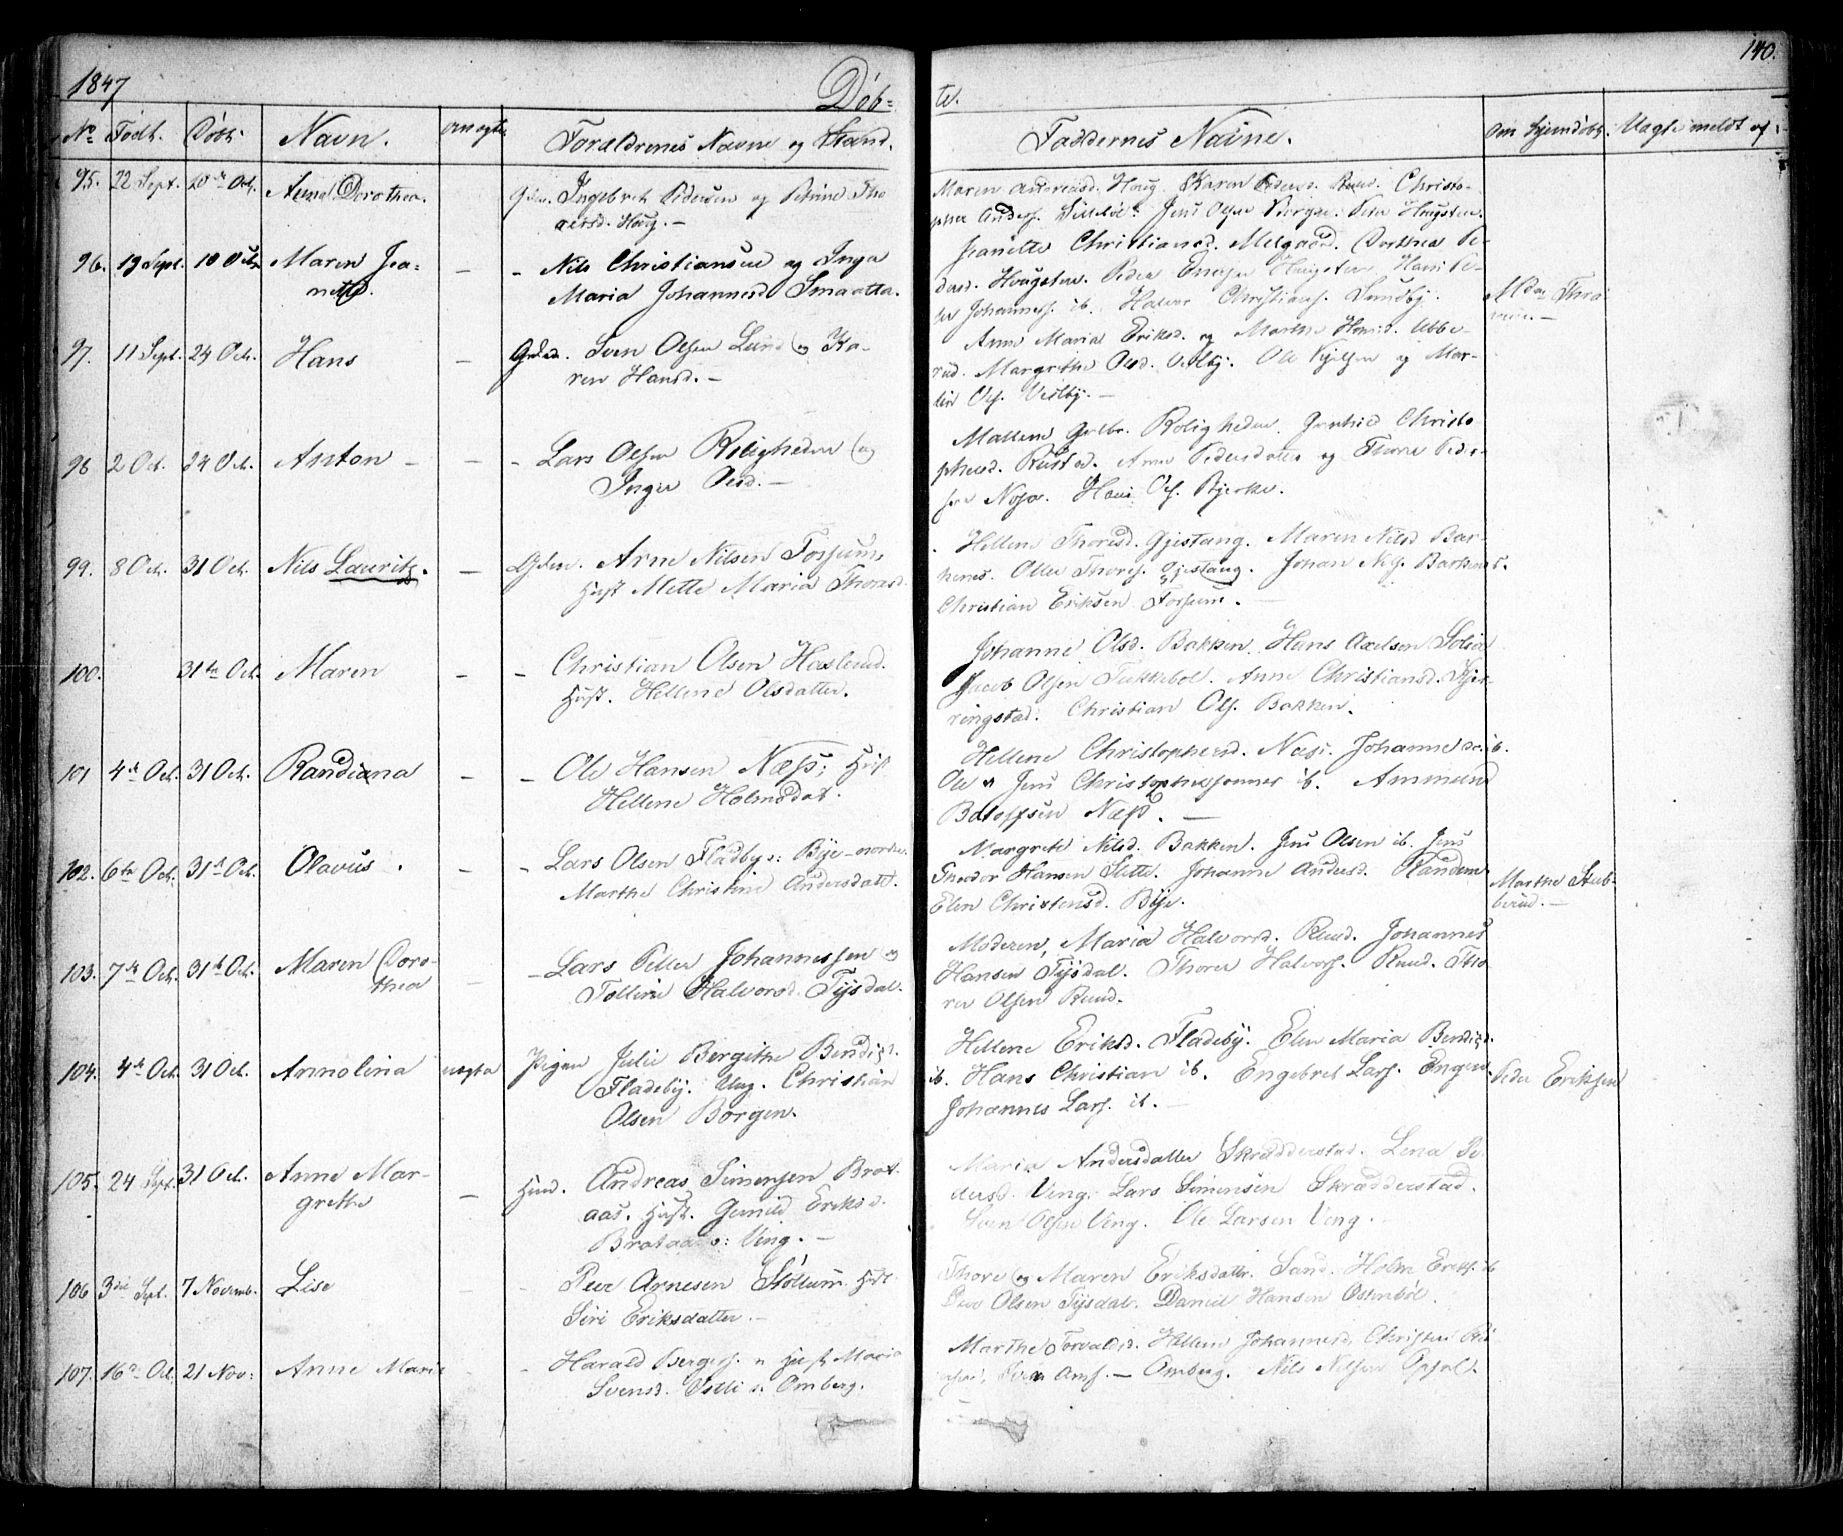 1847
Døb=
te.
140.
No Født. Døbt. Navn. om ægte Forældrenes Navne og Stand. Faddernes Navne. Om hjemdøbt. Uægte meldt og
95. 22 Sept. 10de Oct. Anne Dorothea. Gdm. Ingebret Pedersen og Petrine Tho
Maren Andreasd. Haug. Karen Pedersd. Ruud. Christo-
pher Anders. Jens Olsen Haugsten.
96. 19 Sept. 10 Octr Maren Jea=
nette.
— - Nils Christiansen og Inga
Maria Johannesd. Smaatta.
Jeanette Christiansd. Melgaard. Dorthea Pe-
dersd. Haugsten. Peder Haugsten Hans Pe-
Johanness. ib. Halvor Christians. Sundby.
97. 11 Sept. 24 Oct. Hans — Gdm. Sven Olsen Lund og Ka-
ren Hansd. —
Anne Maria Eriksd. og Marthe Hansd. Ubbe-
rud. Margrethe Olsd. Vestby. Ole Kjelsen og Mar-
tin Ols. Vestby. —
98 2 Oct. 24 Oct. Anton — — - Lars Olsen Roligheden og
Inger Olsd. —
Mallene Roligheden. Gunhild Christo
phersd. Rustad. Anne Pedersdatter og Thore Peder-
sen Hans Ols. Bjerke.
99. 8 Oct. 31 Oct. Nils Lauritz. — Gdm. Arne Nilsen Fossum,
Hust Mette Maria Thoresd
Hellene Thoresd. Gjestang. Maren Nilsd Bar-
henes. Ollea Thores. Gjestang. Johan Nils. Barhenes.
Christian Eriksen Fossum. —
100. 31te Oct. Maren — - Christian Olsen Haslerud.
Hust. Hellene Olsdatter.
Johanne Olsd. Bakken. Hans Axelsen Solia
Jacob Olsen Tukkebol. Anne Christiansd. Skjer-
ringstad. Christian Ols. Bakken.
101 4de Oct. 31 Oct. Randiana — - Ole Hansen Næss; Hust
Hellene Holmsdat.
Hellene Christophersd. Næss. Johanne do. ib.
Ole & Jens Christophersønner ib. Ammund
Botolfsen Næss. —
102. 6te Oct. 31te Oct. Olavus. — - Lars Olsen Fladbys: Bye-nordre.
Marthe Christine Andersdatt.
Margrete Nilsd. Bakken. Jens Olsen ib. Jens
Theodor Hansen Slette. Johanne Andersd. Randem
Elen Christensd. Bye.
Marthe Stub-
berud. —
103. 7de Oct. 31te Oct. Maren Doro-
thea
— - Lars Peller Johannessen og
Tolline Halvorsd. Tysdal.
Moderen, Maria Halvorsd. Ruud. Johannes
Hansen Tysdal. Thorer Halvors. Ruud. Tho
rer Olsen Ruud.
104. 4de Oct. 31 Oct. Annolina uægta Pigen Julie Bergithe Bendixd.
Fladeby. Ung. Christian
Olsen Borgen.
Hellene Eriksd. Fladeby. Elen Maria Bendixd.
ib. Hans Christian ib. Engebret Lars. Engen
Johannes Lars. ib. —
Peder Eriksen
105. 24 Sept. 31 Oct. Anne Mar-
grethe
— Husm. Andreas Simensen Brat-
aas. Hust. Gunild Eriksd.
Brataas: Ving. —
Maria Andersdatter Skradderstad. Lena Pe-
dersd. Ving. Lars Simensen Skradderstad.
Sven Olsen Ving. Ole Larsen Ving. —
106 3die Sept. 7 Novemb. Lise - - Peer Arnesen Støttum. Hust.
Siri Eriksdatter. —
Thore og Maren Eriksdattr. Sand. Holm Eriks. ib
Peer Olsen Tysdal. Daniel Hansen Ostenbøl.
107. 16de Oct. 21 Nov: Anne Marie - - Harald Berges. & Hust Maria
Svensd. Omberg.
Marthe Torvaldsd. Hellene Johannesd. Christen
— Omberg. Nils Nilsen Opsal.